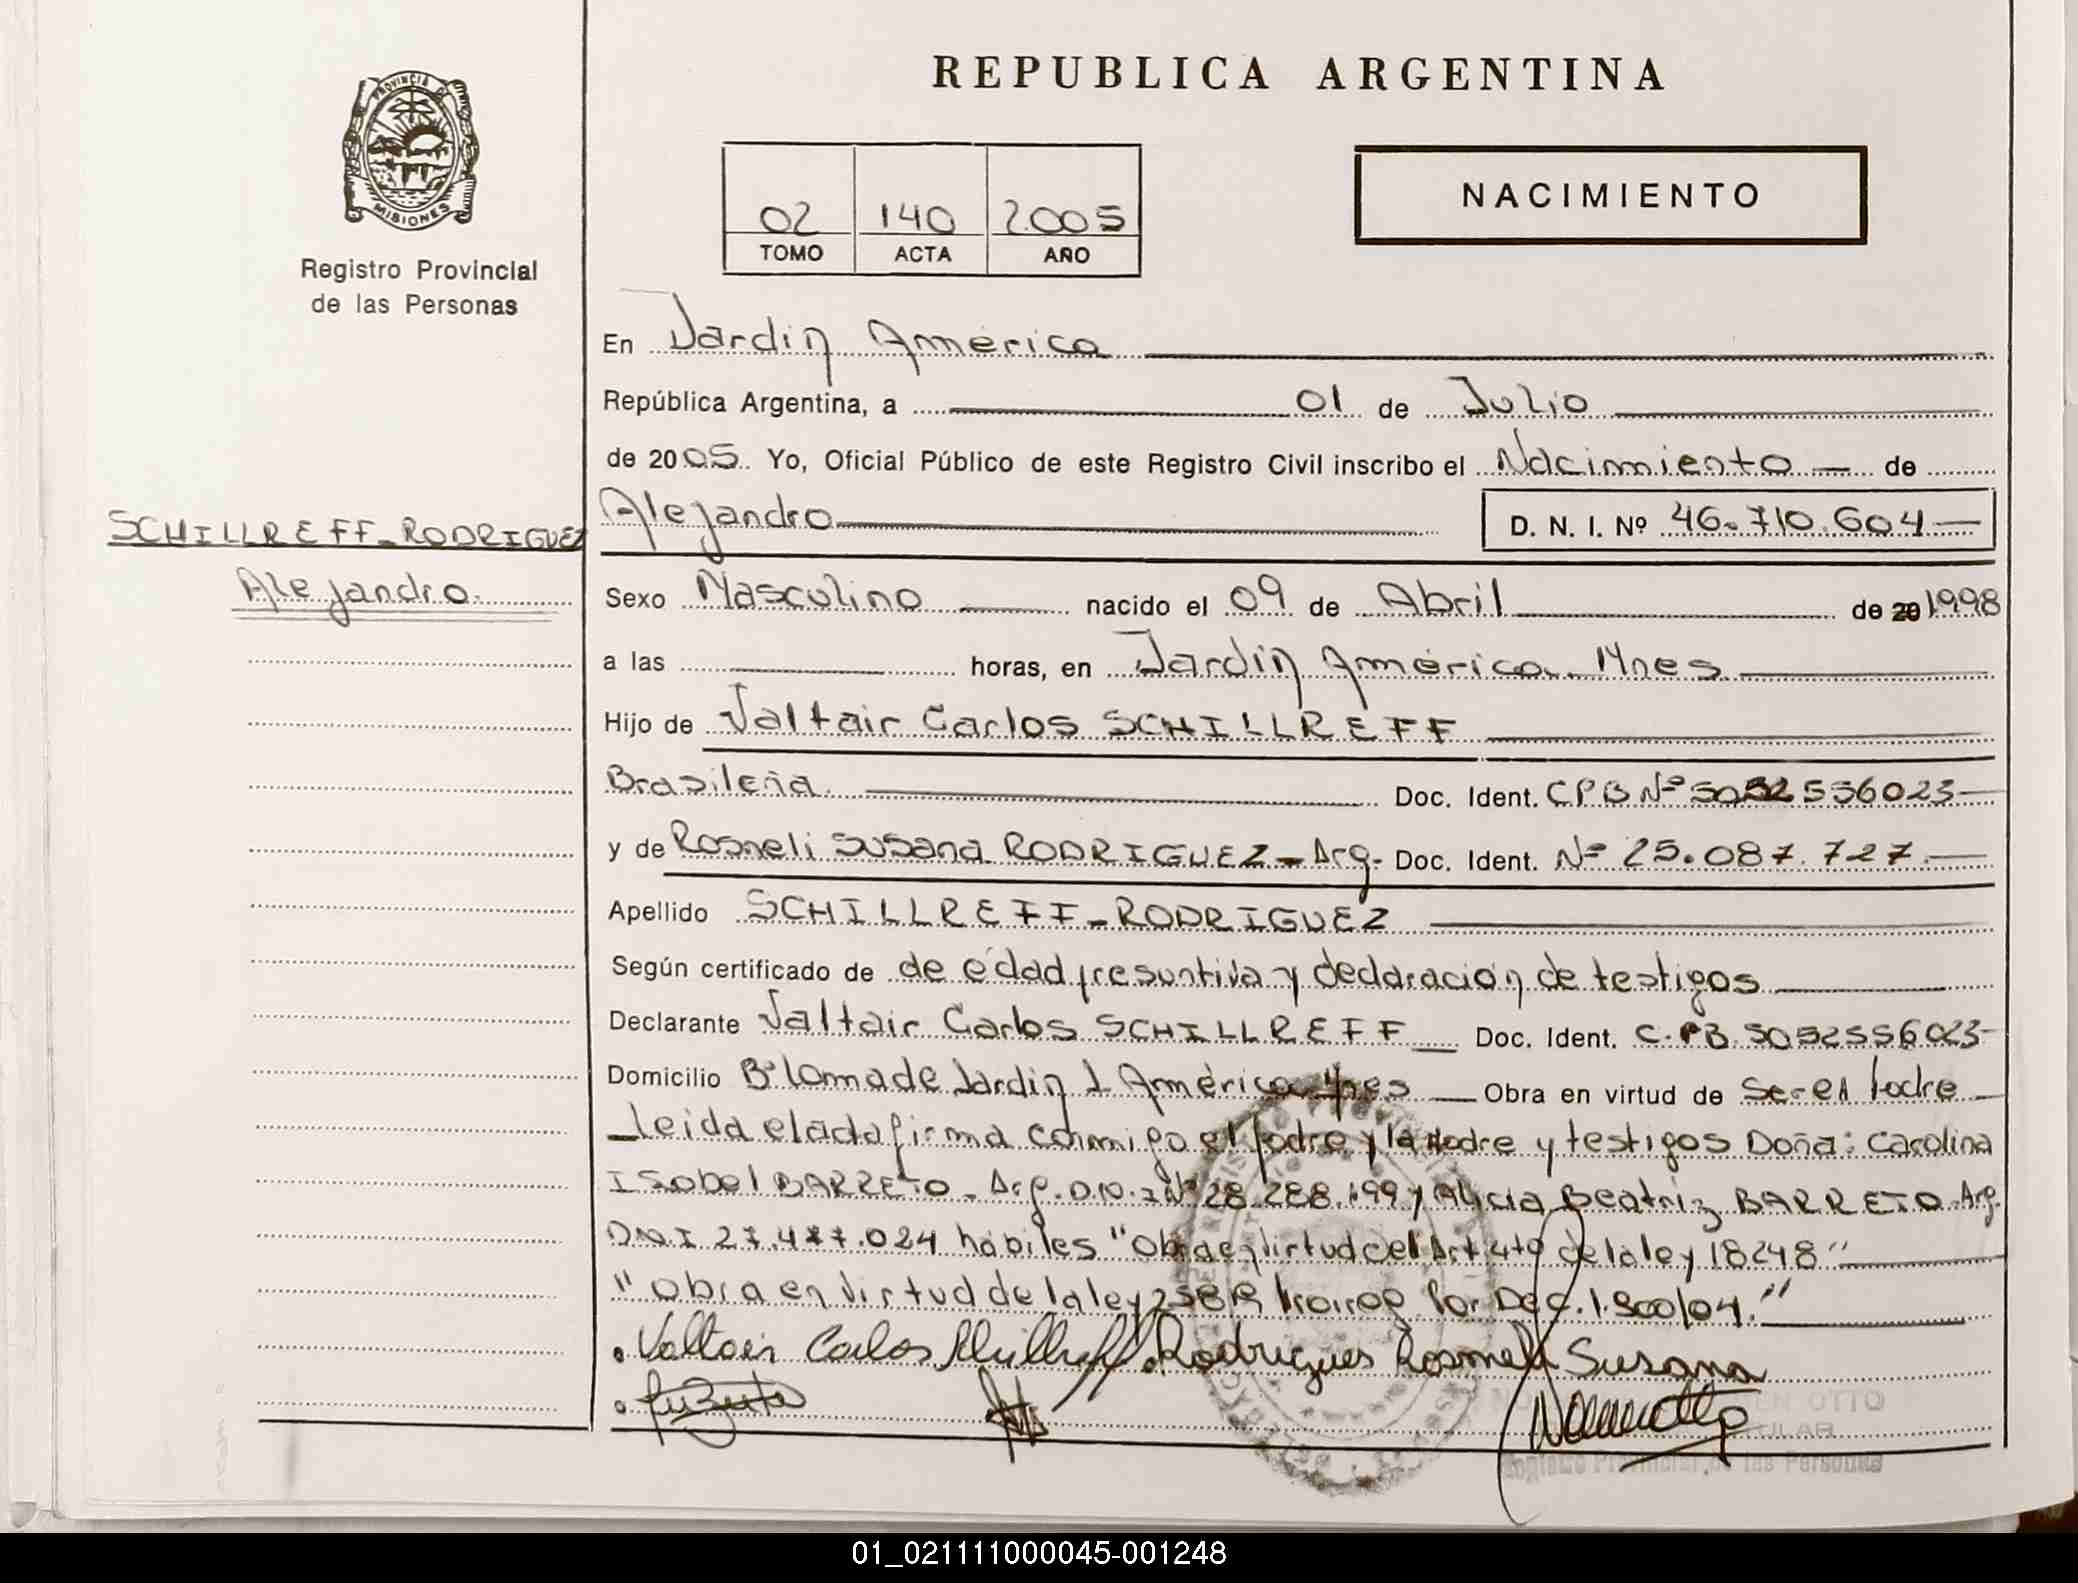 REPUBLICA ARGENTINA
PROVINCIA DE MISIONES
Registro Provincial
de las Personas
02 140 2005
TOMO ACTA AÑO
NACIMIENTO
En Jardín América
República Argentina, a 01 de Julio
de 2005. Yo, Oficial Público de este Registro Civil inscribo el Nacimiento de
SCHILLREFF-RODRIGUEZ
Alejandro
Alejandro D. N. I. Nº 46.710.604
Sexo Masculino nacido el 09 de Abril de 20 1998
a las horas, en Jardín América. Mnes
Hijo de Valtair Carlos SCHILLREFF
Brasileña Doc. Ident. CPB Nº 5052556023
y de Rosneli Susana RODRIGUEZ - Arg. Doc. Ident. Nº 25.087.727
Apellido SCHILLREFF-RODRIGUEZ
Según certificado de de edad presuntiva y declaración de testigos
Declarante Valtair Carlos SCHILLREFF Doc. Ident. C.PB. 5052556023
Domicilio Bº Loma de Jardín América Mnes Obra en virtud de Ser el Padre
Leida el acta firma conmigo el Padre y la Madre y testigos Doña: Carolina
Isabel BARRETO - Arg. D.N.I Nº 28.288.199 y Alicia Beatriz BARRETO. Arg.
DNI 27.477.024 hábiles "Obra en virtud del Art. de la ley 18248"
"Obra en virtud de la ley Por Dec. 1.900/04."
Valtair Carlos Schillreff Rodrigues Rosmeli Susana
EN OTTO
Registro Provincial de las Personas
01_021111000045-001248